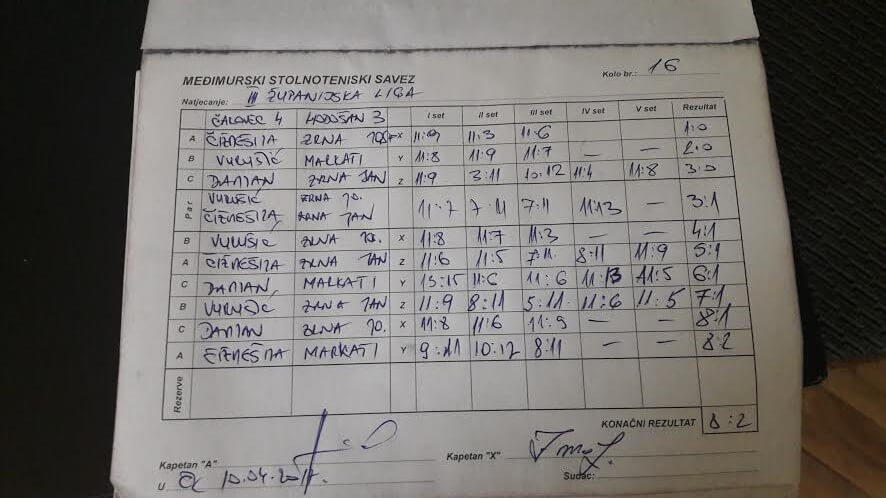 MEĐIMURSKI STOLNOTENISKI SAVEZ Kolo br.: 16
Natjecanje: III ŽUPANIJSKA LIGA
ČALOVEC 4 HODOŠAN 3 I set II set III set IV set V set Rezultat
A ČIŽMEŠIJA ZRNA X 11:9 11:3 11:6 1:0
B VURUŠIĆ MARKATI Y 11:8 11:9 11:7 — — 2:0
C DAMJAN ZRNA JAN Z 11:9 3:11 10:12 11:4 11:8 3:0
Par VURUŠIĆ ZRNA JO.
ČIŽMEŠIJA ZRNA JAN 11:7 7:11 7:11 11:13 — 3:1
B VURUŠIĆ ZRNA JO. X 11:8 11:7 11:3 — — 4:1
A ČIŽMEŠIJA ZRNA JAN Z 11:6 11:5 7:11 8:11 11:9 5:1
C DAMJAN MARKATI Y 11:6 11:6 11:13 11:5 6:1
B VURUŠIĆ ZRNA JAN Z 11:9 8:11 5:11 11:6 11:5 7:1
C DAMJAN ZRNA JO. X 11:8 11:6 11:9 — — 8:1
A ČIŽMEŠIJA MARKATI Y 9:11 10:12 8:11 — — 8:2
Rezerve
KONAČNI REZULTAT 8:2
Kapetan "A" Kapetan "X"
U 10.04.2017. Sudac: